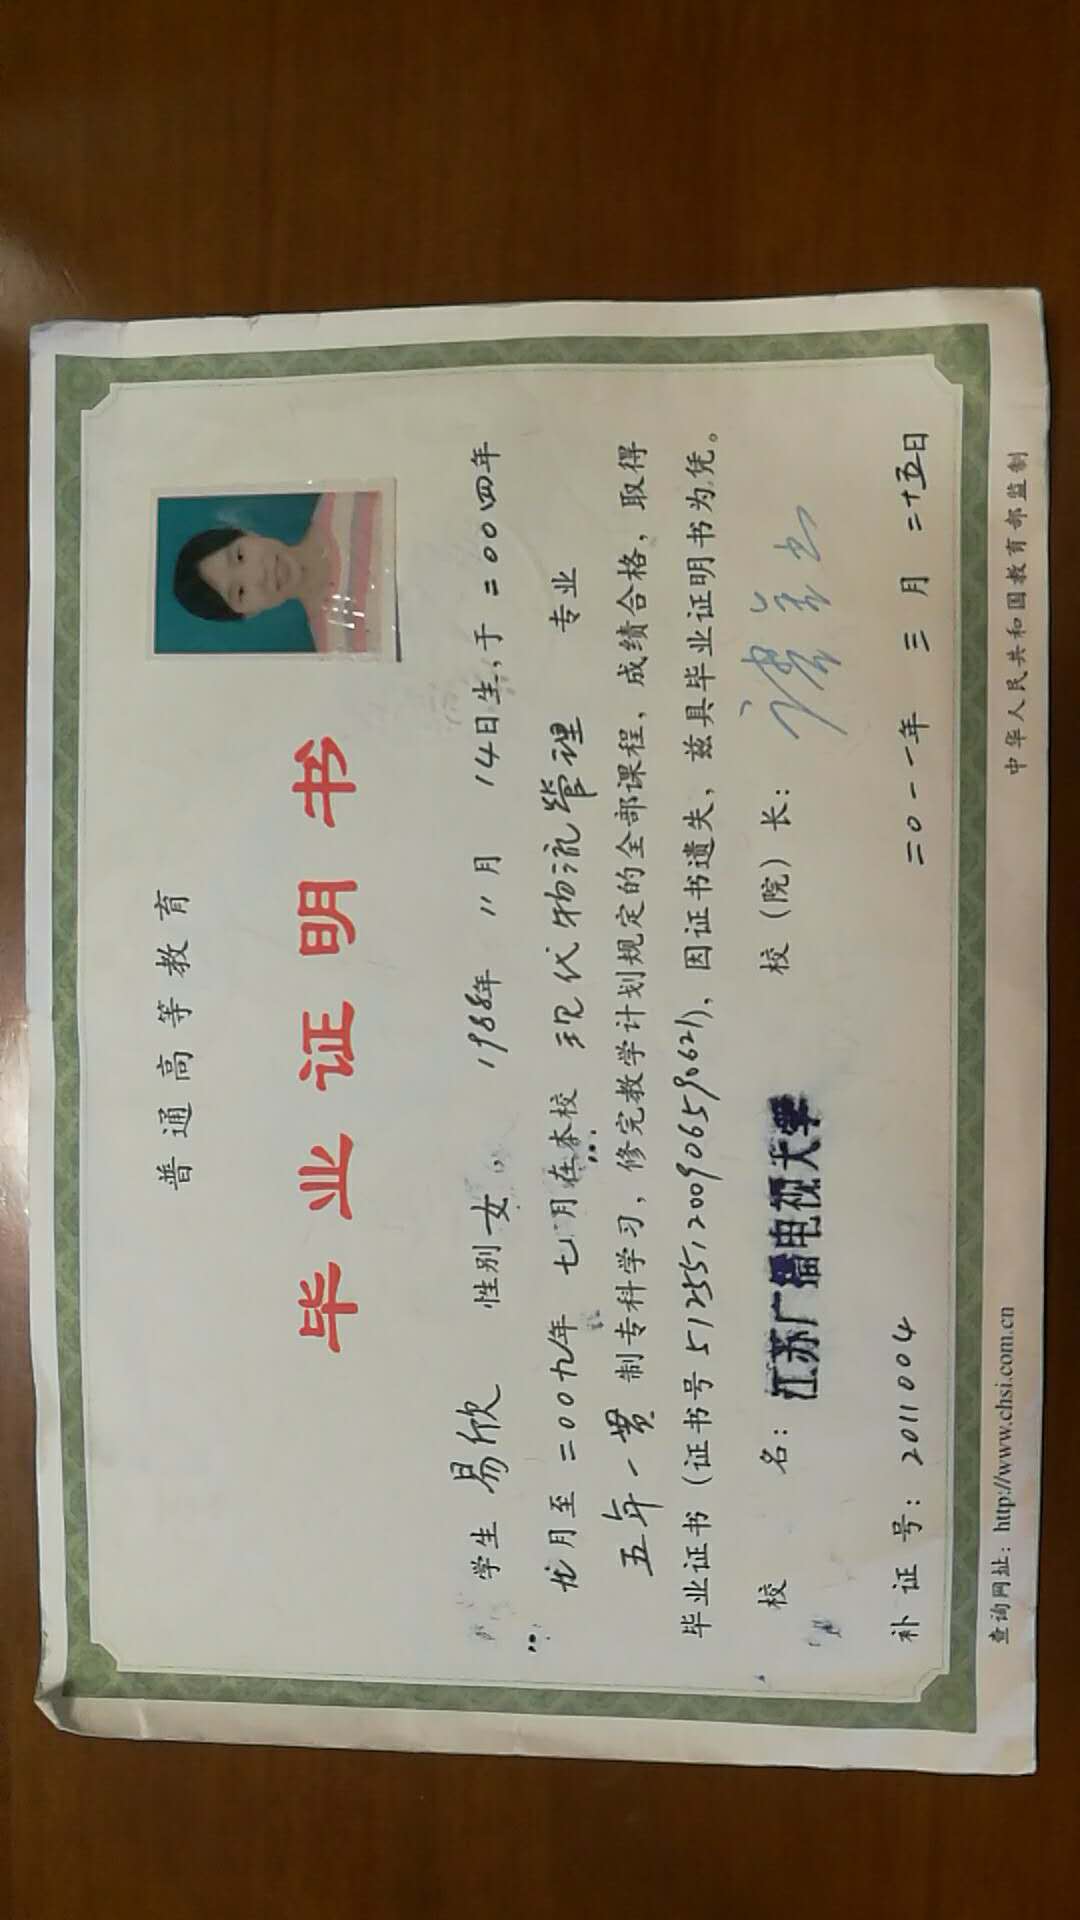 普通高等教育
毕业证明书
学生 易欣 性别 女 1988年 11月 14日生，于 二00四年
九月至 二00九年 七月在本校 现代物流管理 专业
五年一贯 制专科学习，修完教学计划规定的全部课程，成绩合格，取得
毕业证书（证书号 512551200906590621），因证书遗失，兹具毕业证明书为凭。
校 名：江苏广播电视大学 校（院）长：
补证号：2011004 二0一一年 三月 二十五日
查询网址：http://www.chsi.com.cn 中华人民共和国教育部监制